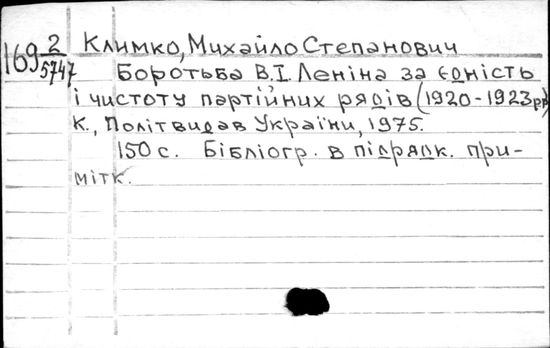 169 2/5747 Климко, Михайло Степанович
Боротьба В.І. Леніна за єдність
і чистоту партійних рядів (1920-1923рр)
К., Політвидав України, 1975.
150 с. Бібліогр. в підрядк. при-
мітк.